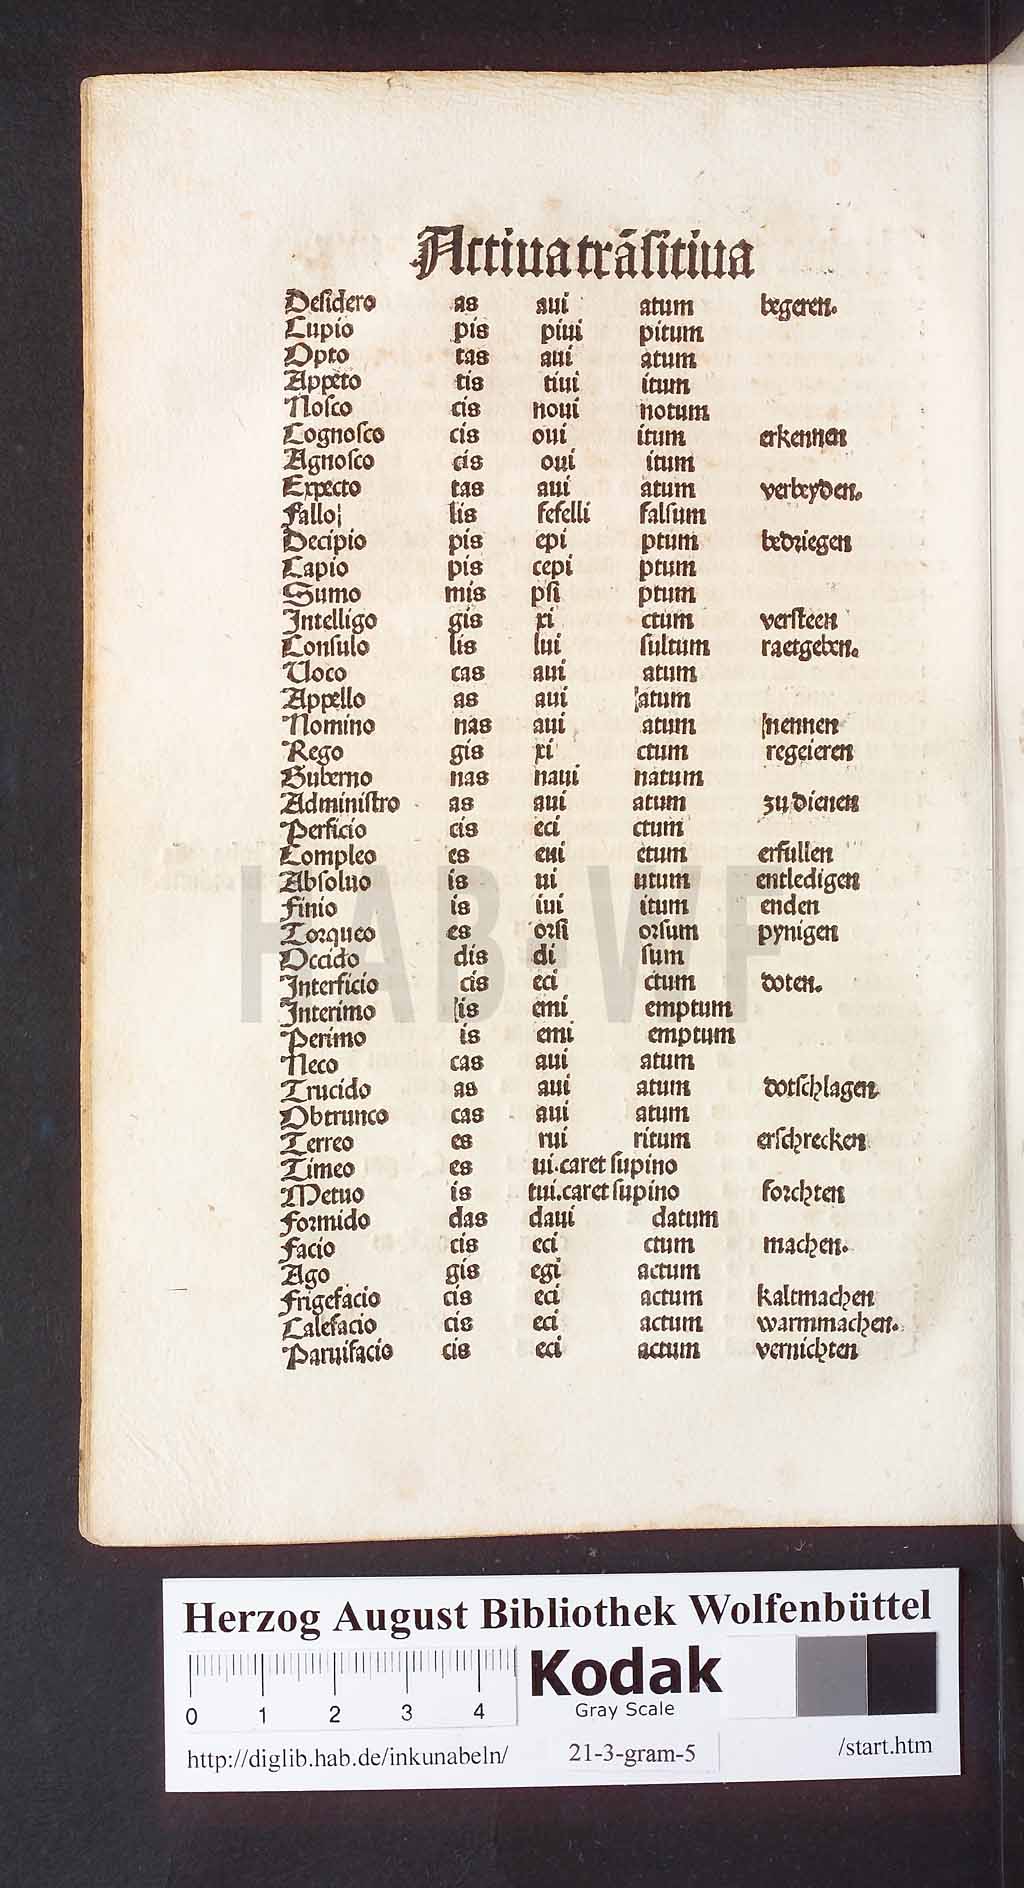 Actiua trāsitiua
Desidero as aui atum begeren.
Cupio pis piui pitum
Opto tas aui atum
Appeto tis tiui itum
Nosco cis noui notum
Cognosco cis oui itum erkennen
Agnosco cis oui itum
Expecto tas aui atum verbeyden.
Fallo lis fefelli falsum
Decipio pis epi ptum bedriegen
Capio pis cepi ptum
Sumo mis psi ptum
Intelligo gis xi ctum versteen
Consulo lis lui sultum raetgeben.
Uoco cas aui atum
Appello as aui atum
Nomino nas aui atum nennen
Rego gis xi ctum regeieren
Guberno nas naui natum
Administro as aui atum zu dienen
Perficio cis eci ctum
Compleo es eui etum erfullen
Absoluo is ui utum entledigen
Finio is iui itum enden
Torqueo es orsi orsum pynigen
Occido dis di sum
Interficio cis eci ctum doten.
Interimo is emi emptum
Perimo is emi emptum
Neco cas aui atum
Trucido as aui atum dotschlagen
Obtrunco cas aui atum
Terreo es rui ritum erschrecken
Timeo es ui.caret supino
Metuo is tui.caret supino forchten
Formido das daui datum
Facio cis eci ctum machen.
Ago gis egi actum
Frigefacio cis eci actum kaltmachen
Calefacio cis eci actum warmmachen.
Paruifacio cis eci actum vernichten
HAB-WF
Herzog August Bibliothek Wolfenbüttel
0 1 2 3 4
Kodak
Gray Scale
http://diglib.hab.de/inkunabeln/ 21-3-gram-5 /start.htm